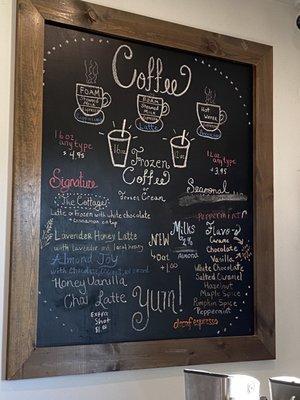 Coffee
FOAM
Steamed
Milk
Espresso
Cappuccino
FOAM
Steamed
Milk
Espresso
Latte
Hot
Water
Espresso
Americano
16oz
any type
$4.95
12oz
any type
$3.95
Frozen
Coffee
Frozen Cream
Signature
The Cottage
Latte or Frozen with white chocolate
+ cinnamon
Lavender Honey Latte
with lavender and local honey
Almond Joy
with Chocolate, Coconut and almond
Honey Vanilla
Chai Latte
Extra
Shot
NEW
20oz
+1.00
Milks
2%
Oat
Almond
Yum!
Seasonal
PEPPERMINT
Flavors
Caramel
Chocolate
Vanilla
White Chocolate
Salted Caramel
Hazelnut
Maple Spice
Pumpkin Spice
Peppermint
decaf espresso